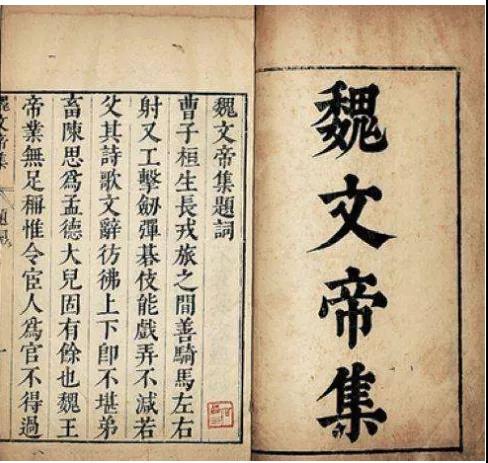 魏文帝集
魏文帝集題詞
曹子桓生長戎旅之間善騎馬左右
射又工擊劒彈碁伎能戲弄不減若
父其詩歌文辭彷彿上下卽不堪弟
畜陳思爲孟德大兒固有餘也魏王
帝業無足稱惟令宦人爲官不得過
魏文帝集